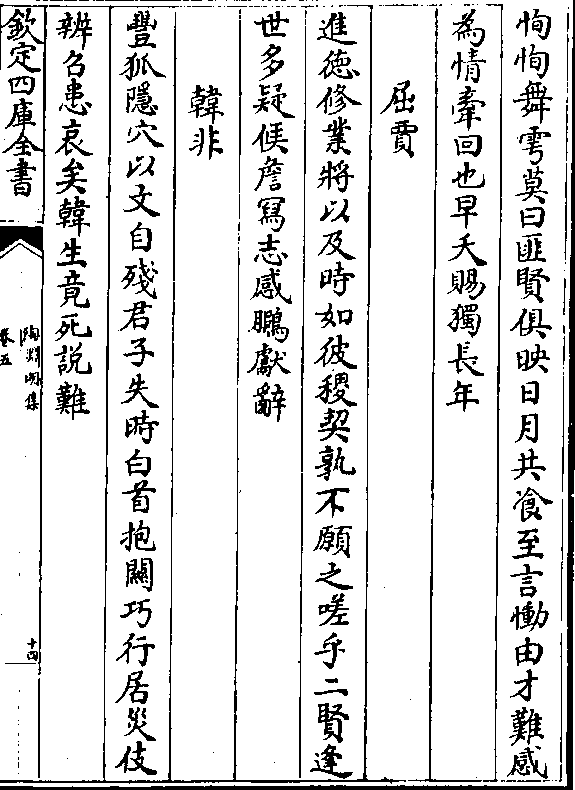 恂恂舞雩莫曰匪賢俱映日月共飡至言慟由才難感
為情牽回也早夭賜獨長年
屈賈
進徳修業將以及時如彼稷契孰不願之嗟乎二賢逢
世多疑候詹冩志感鵩獻辭
韓非
豐狐隱穴以文自殘君子失時白首抱關巧行居災伎
辨召患哀矣韓生竟死說難
欽定四庫全書
陶淵明集
卷五
十四